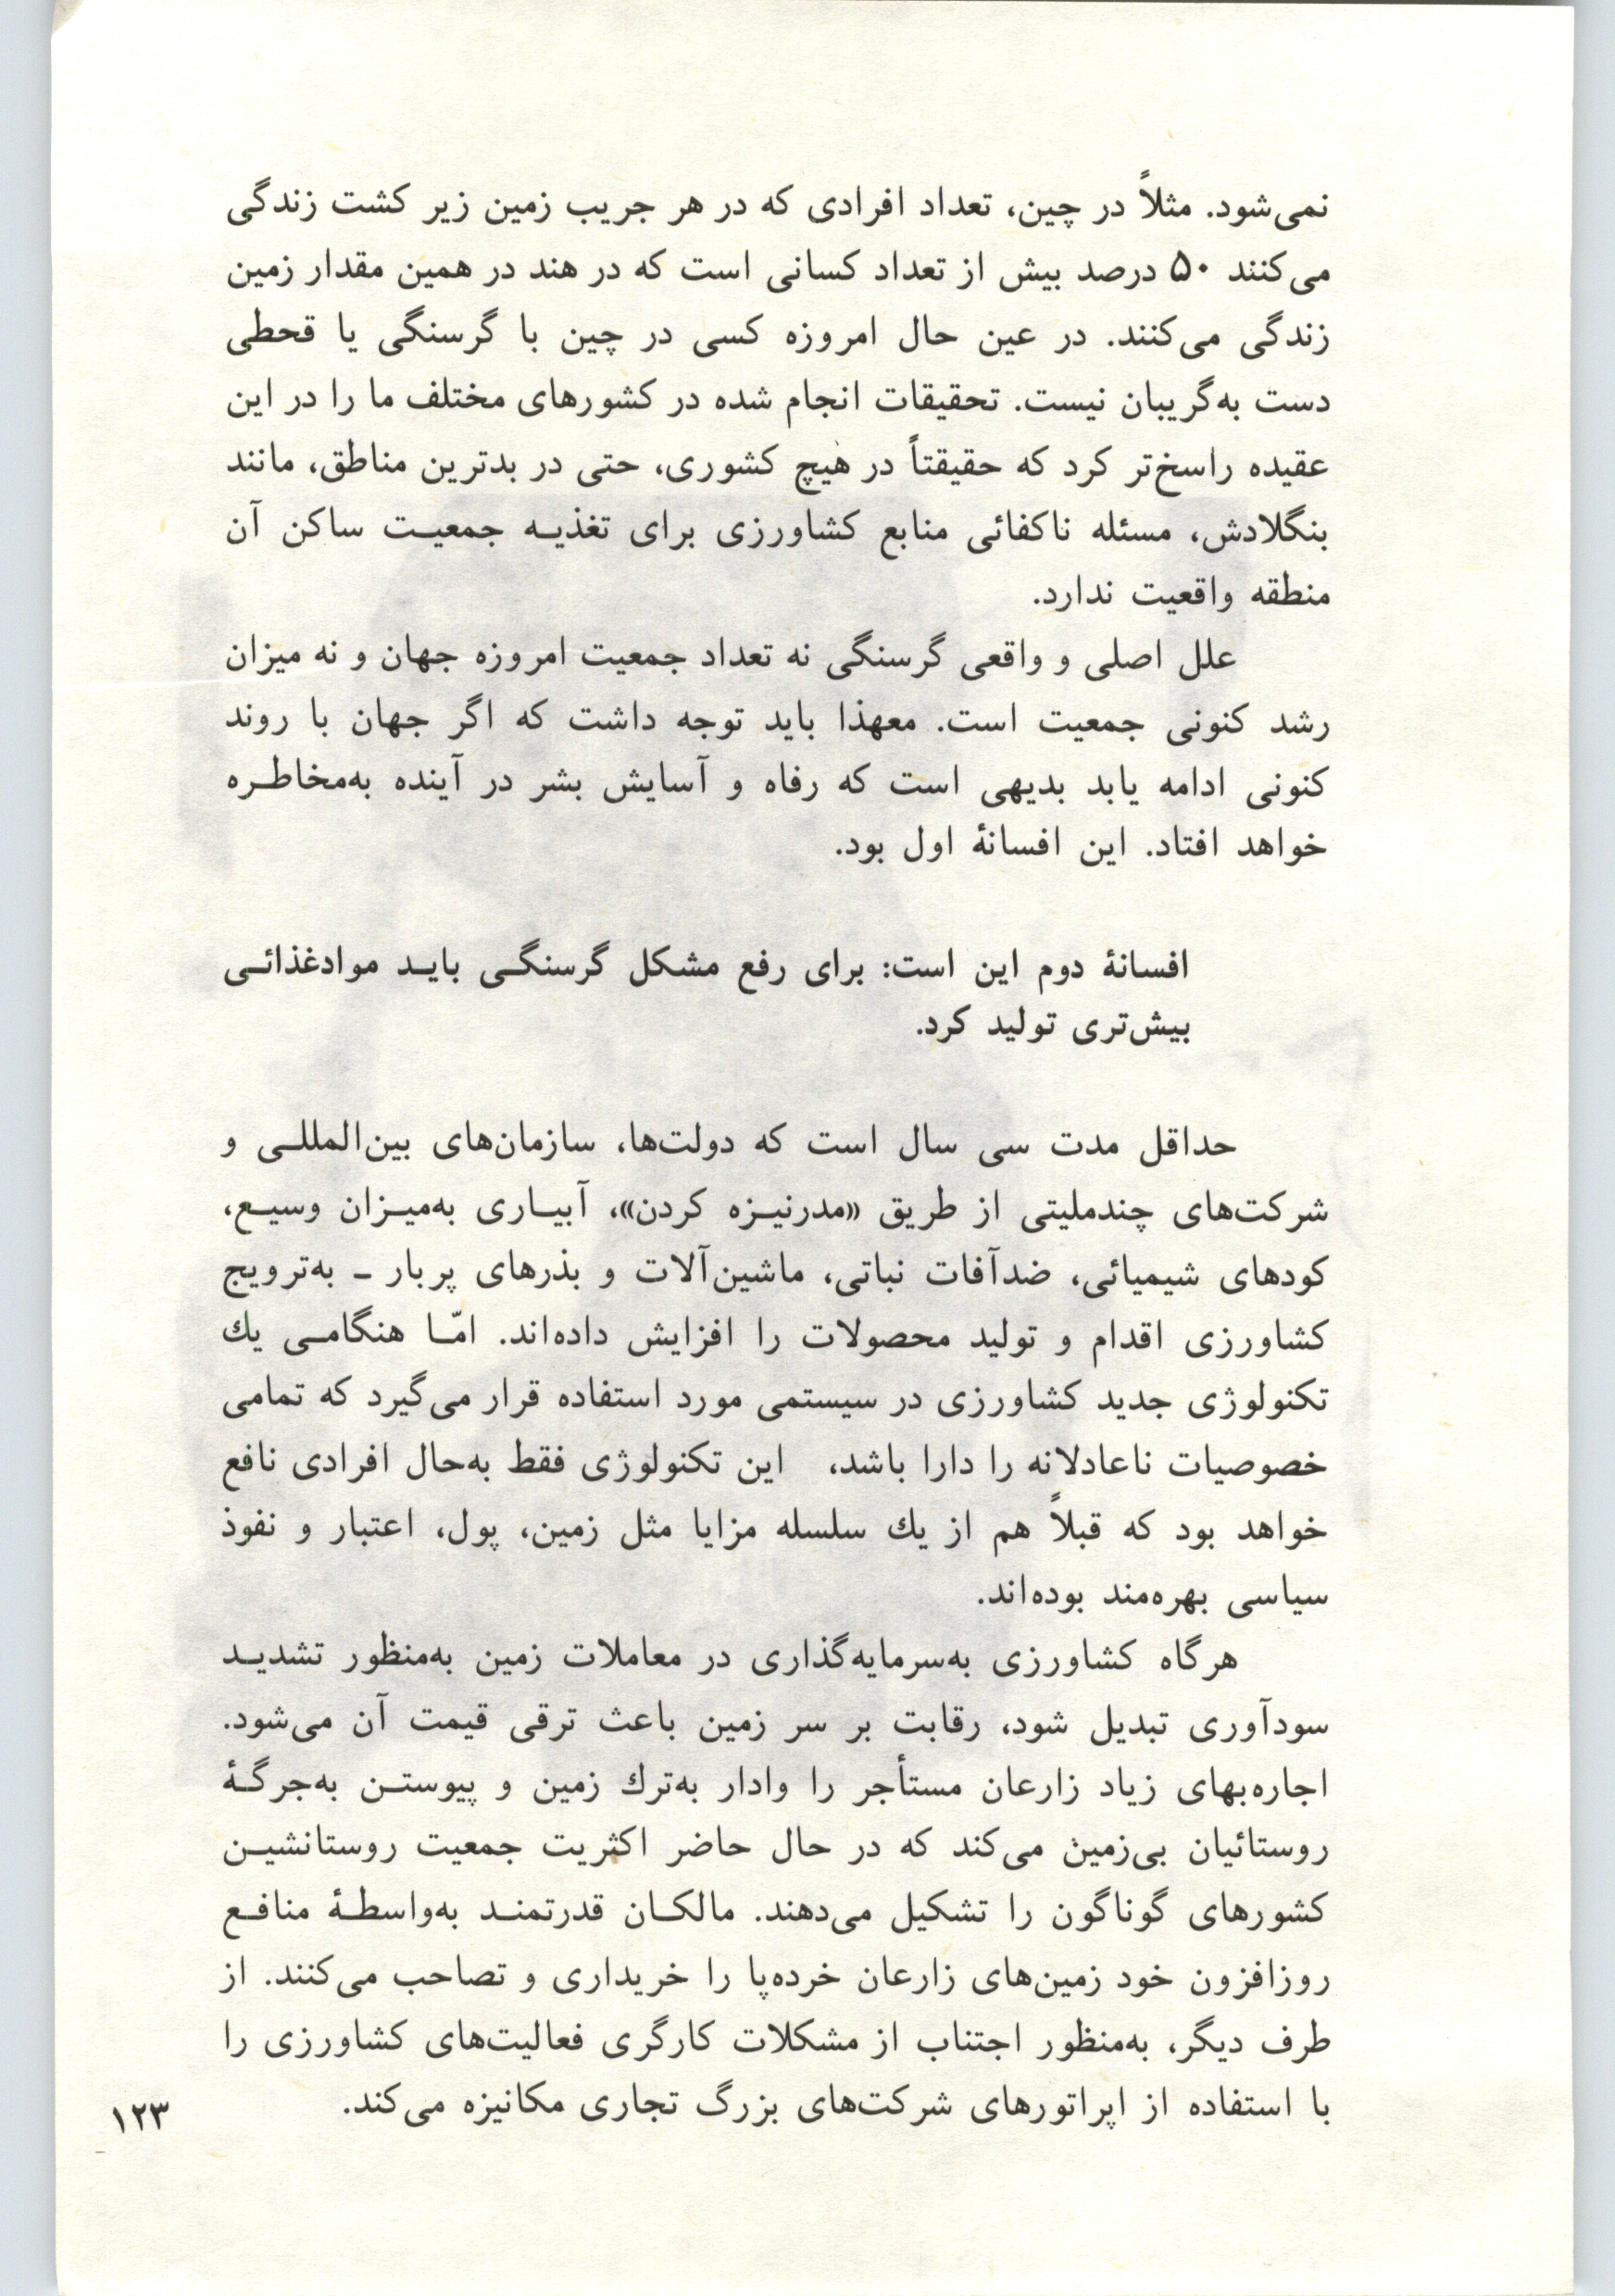 نمی‌شود. مثلاً در چین، تعداد افرادی که در هر جریب زمین زیر کشت زندگی
می‌کنند ۵۰ درصد بیش از تعداد کسانی است که در هند در همین مقدار زمین
زندگی می‌کنند. در عین حال امروزه کسی در چین با گرسنگی یا قحطی
دست به‌گریبان نیست. تحقیقات انجام شده در کشورهای مختلف ما را در این
عقیده راسخ‌تر کرد که حقیقتاً در هیچ کشوری، حتی در بدترین مناطق، مانند
بنگلادش، مسئله ناکفائی منابع کشاورزی برای تغذیـه جمعیـت ساکن آن
منطقه واقعیت ندارد.
علل اصلی و واقعی گرسنگی نه تعداد جمعیت امروزه جهان و نه میزان
رشد کنونی جمعیت است. معهذا باید توجه داشت که اگر جهان با روند
کنونی ادامه یابد بدیهی است که رفاه و آسایش بشر در آینده به‌مخاطـره
خواهد افتاد. این افسانهٔ اول بود.
افسانهٔ دوم این است: برای رفع مشکل گرسنگـی بایـد موادغذائـی
بیش‌تری تولید کرد.
حداقل مدت سی سال است که دولت‌ها، سازمان‌های بین‌المللـی و
شرکت‌های چندملیتی از طریق «مدرنیـزه کردن»، آبیـاری به‌میـزان وسیـع،
کودهای شیمیائی، ضدآفات نباتی، ماشین‌آلات و بذرهای پربار ـ به‌ترویج
کشاورزی اقدام و تولید محصولات را افزایش داده‌اند. امّـا هنگامـی یك
تکنولوژی جدید کشاورزی در سیستمی مورد استفاده قرار می‌گیرد که تمامی
خصوصیات ناعادلانه را دارا باشد، این تکنولوژی فقط به‌حال افرادی نافع
خواهد بود که قبلاً هم از یك سلسله مزایا مثل زمین، پول، اعتبار و نفوذ
سیاسی بهره‌مند بوده‌اند.
هرگاه کشاورزی به‌سرمایه‌گذاری در معاملات زمین به‌منظور تشدیـد
سودآوری تبدیل شود، رقابت بر سر زمین باعث ترقی قیمت آن می‌شود.
اجاره‌بهای زیاد زارعان مستأجر را وادار به‌ترك زمین و پیوستـن به‌جرگـهٔ
روستائیان بی‌زمین می‌کند که در حال حاضر اکثریت جمعیت روستانشیـن
کشورهای گوناگون را تشکیل می‌دهند. مالکـان قدرتمنـد به‌واسطـهٔ منافـع
روزافزون خود زمین‌های زارعان خرده‌پا را خریداری و تصاحب می‌کنند. از
طرف دیگر، به‌منظور اجتناب از مشکلات کارگری فعالیت‌های کشاورزی را
با استفاده از اپراتورهای شرکت‌های بزرگ تجاری مکانیزه می‌کند.
۱۲۳